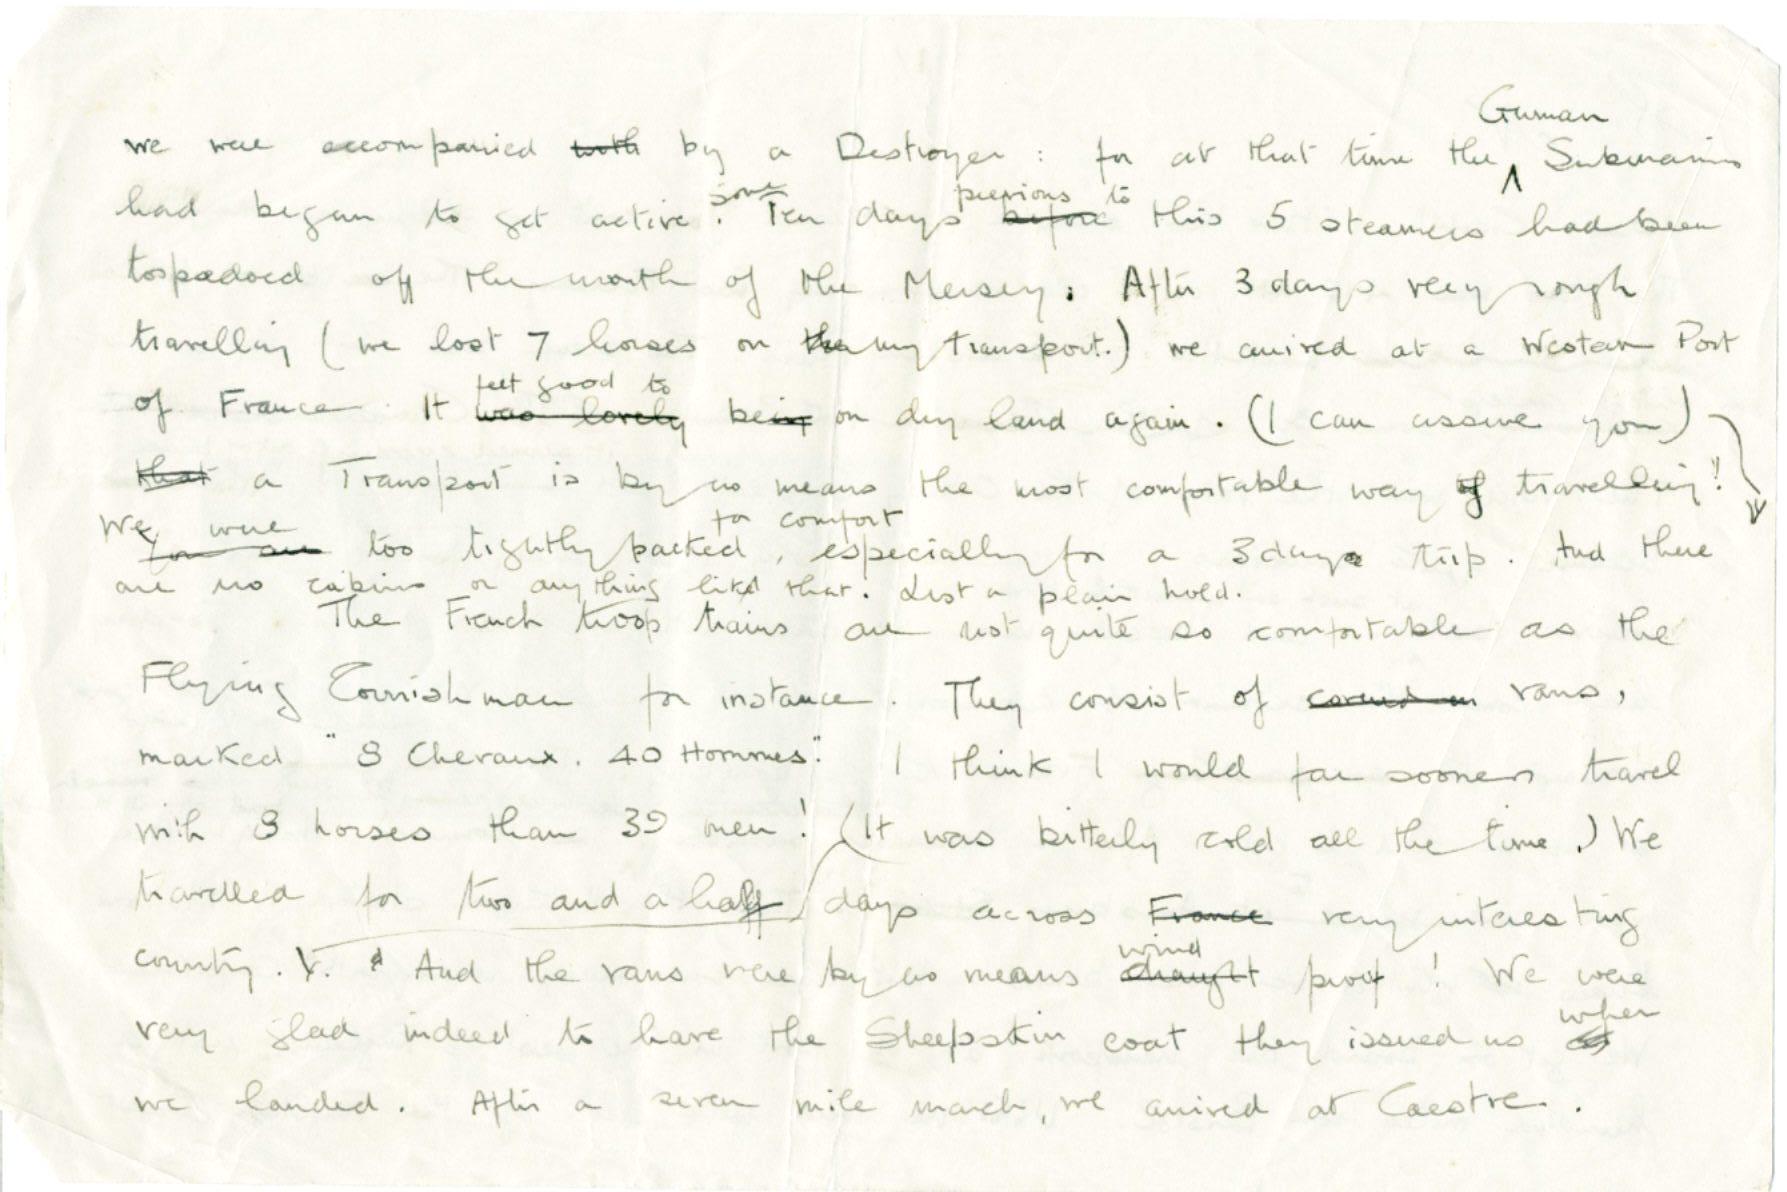 German
we were accompanied with by a Destroyer : for at that time the ^ Submarines
some previous to
had began to get active. Ten days before this 5 steamers had been
torpedoed off the mouth of the Mersey. After 3 days very rough
travelling (we lost 7 horses on the my transport.) we arrived at a Western Port
felt good to
of France. It was lovely being on dry land again. (I can assure you)
that a Transport is by no means the most comfortable way of travelling!
We were for comfort
You are too tightly packed, especially for a 3 days trip. And there
are no cabins or anything like that. Just a plain hold.
The French troop trains are not quite so comfortable as the
Flying Cornishman for instance. They consist of vans,
marked "8 Chevaux. 40 Hommes". I think I would far sooner travel
with 8 horses than 39 men! (It was bitterly cold all the time.) We
travelled for two and a half days across France very interesting
wind
country. X. And the vans were by no means draught proof! We were
when
very glad indeed to have the Sheepskin coat they issued us as
we landed. After a seven mile march, we arrived at Caestre.